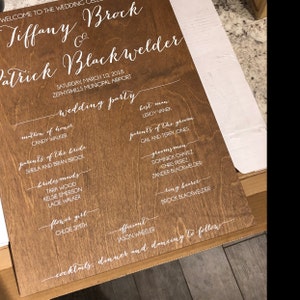 WELCOME TO THE WEDDING
Tiffany Brock
&
Patrick Blackwelder
SATURDAY, MARCH 10, 2018
ZEPHYRHILLS MUNICIPAL AIRPORT
wedding party
matron of honor
CANDY WARNER
parents of the bride
SHEILA AND BRIAN BROCK
bridesmaids
TARA WOOD
KELSIE EMERSON
LACIE WALKER
flower girl
CHLOE SMITH
best man
parents of the groom
CARL AND TERRI JONES
groomsmen
DOMINICK CHAVEZ
CHRIS PEREZ
ZANDER BLACKWELDER
ring bearer
BROCK BLACKWELDER
officiant
JASON WHEELER
cocktails, dinner and dancing to follow